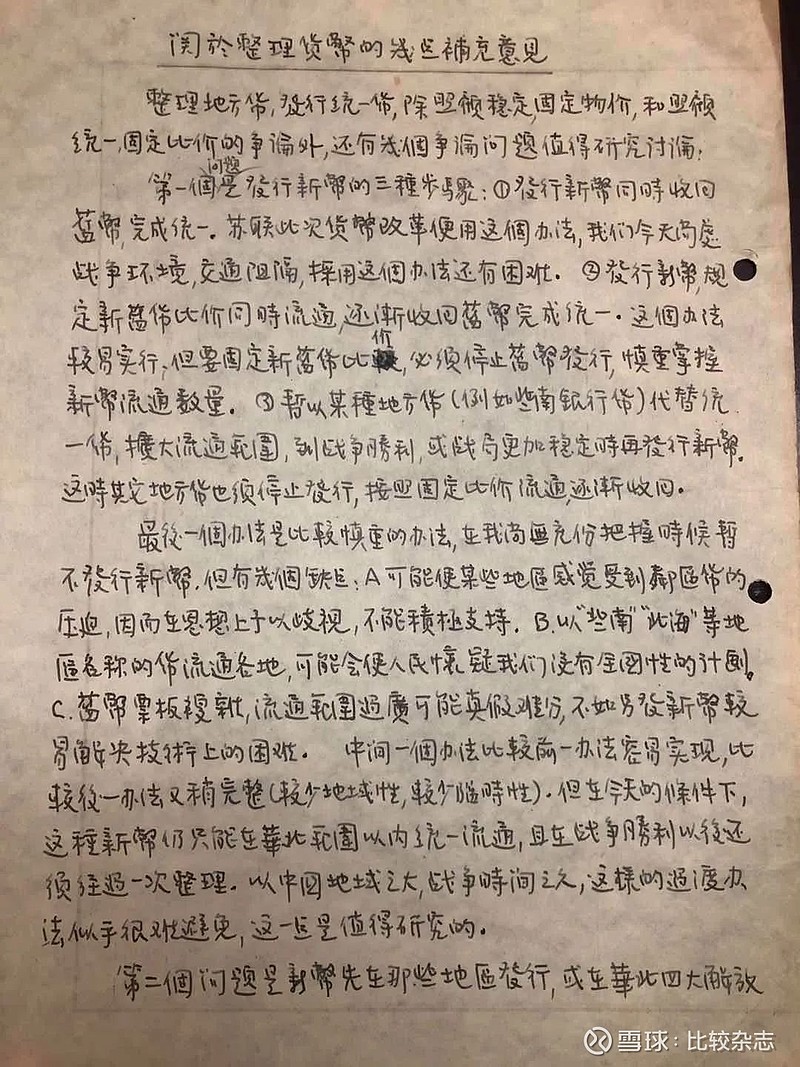 关於整理货幣的幾点補充意見
整理地方币,發行統一币,除照顧稳定,固定物价,和照顧
統一,固定比价的争論外,还有幾個争論问题值得研究讨論。
第一個问题是發行新幣的三種步骤:①發行新幣同時收囬
舊幣,完成統一。苏联此次货幣改革便用这個办法,我们今天尚處
战争环境,交通阻隔,採用这個办法还有困难。②發行新幣,规
定新舊币比价同時流通,逐漸收囬舊幣完成統一。这個办法
較易实行,但要固定新舊币比价,必须停止舊幣發行,慎重掌握
新幣流通数量。③暂以某種地方币(例如冀南銀行币)代替統
一币,擴大流通範圍,到战争勝利,或战局更加稳定時再發行新幣。
这時其它地方币也须停止發行,按照固定比价流通,逐漸收囬。
最後一個办法是比較慎重的办法,在我尚無充份把握時候暂
不發行新幣。但有幾個缺点:A可能使某些地區感觉受到鄰區币的
压迫,因而在思想上予以歧视,不能積極支持。B.以“冀南”“北海”等地
區名称的币流通各地,可能会使人民懷疑我们没有全國性的计劃。
C.舊幣票板複雜,流通範圍過廣可能真假难分,不如另發新幣較
易解决技術上的困难。 中间一個办法比較前一办法容易实现,比
較後一办法又稍完整(較少地域性,較少臨時性)。但在今天的條件下,
这種新幣仍只能在華北範圍以内統一流通,且在战争勝利以後还
须经過一次整理。以中國地域之大,战争時间之久,这樣的過渡办
法似乎很难避免,这一点是值得研究的。
第二個问题是新幣先在那些地區發行,或在華北四大解放
雪球:比较杂志